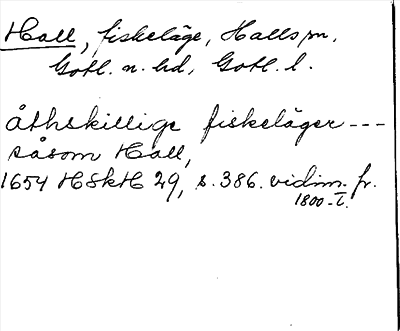 Hall, fiskeläge, Halls sn,
Gotl. n. hd, Gotl. l.
åthskillige fiskeläger---
såsom Hall,
1654 HSkH 29, s. 386. vidim. fr.
1800-t.